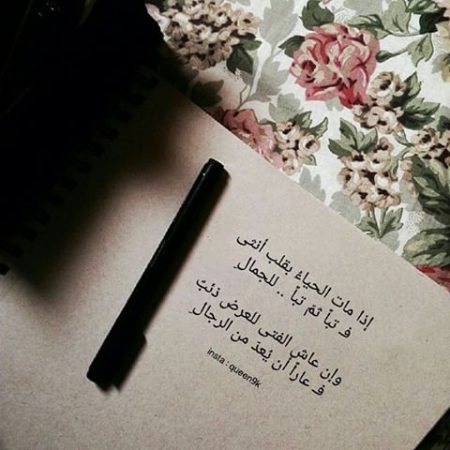 إذا مات الحياءُ بقلب أنثى
فـ تباً ثمّ تباً .. للجمالِ
وإن عاش الفتى للعرض ذئبٌ
فـ عاراً أن يُعدّ من الرجالِ
insta : queen9k